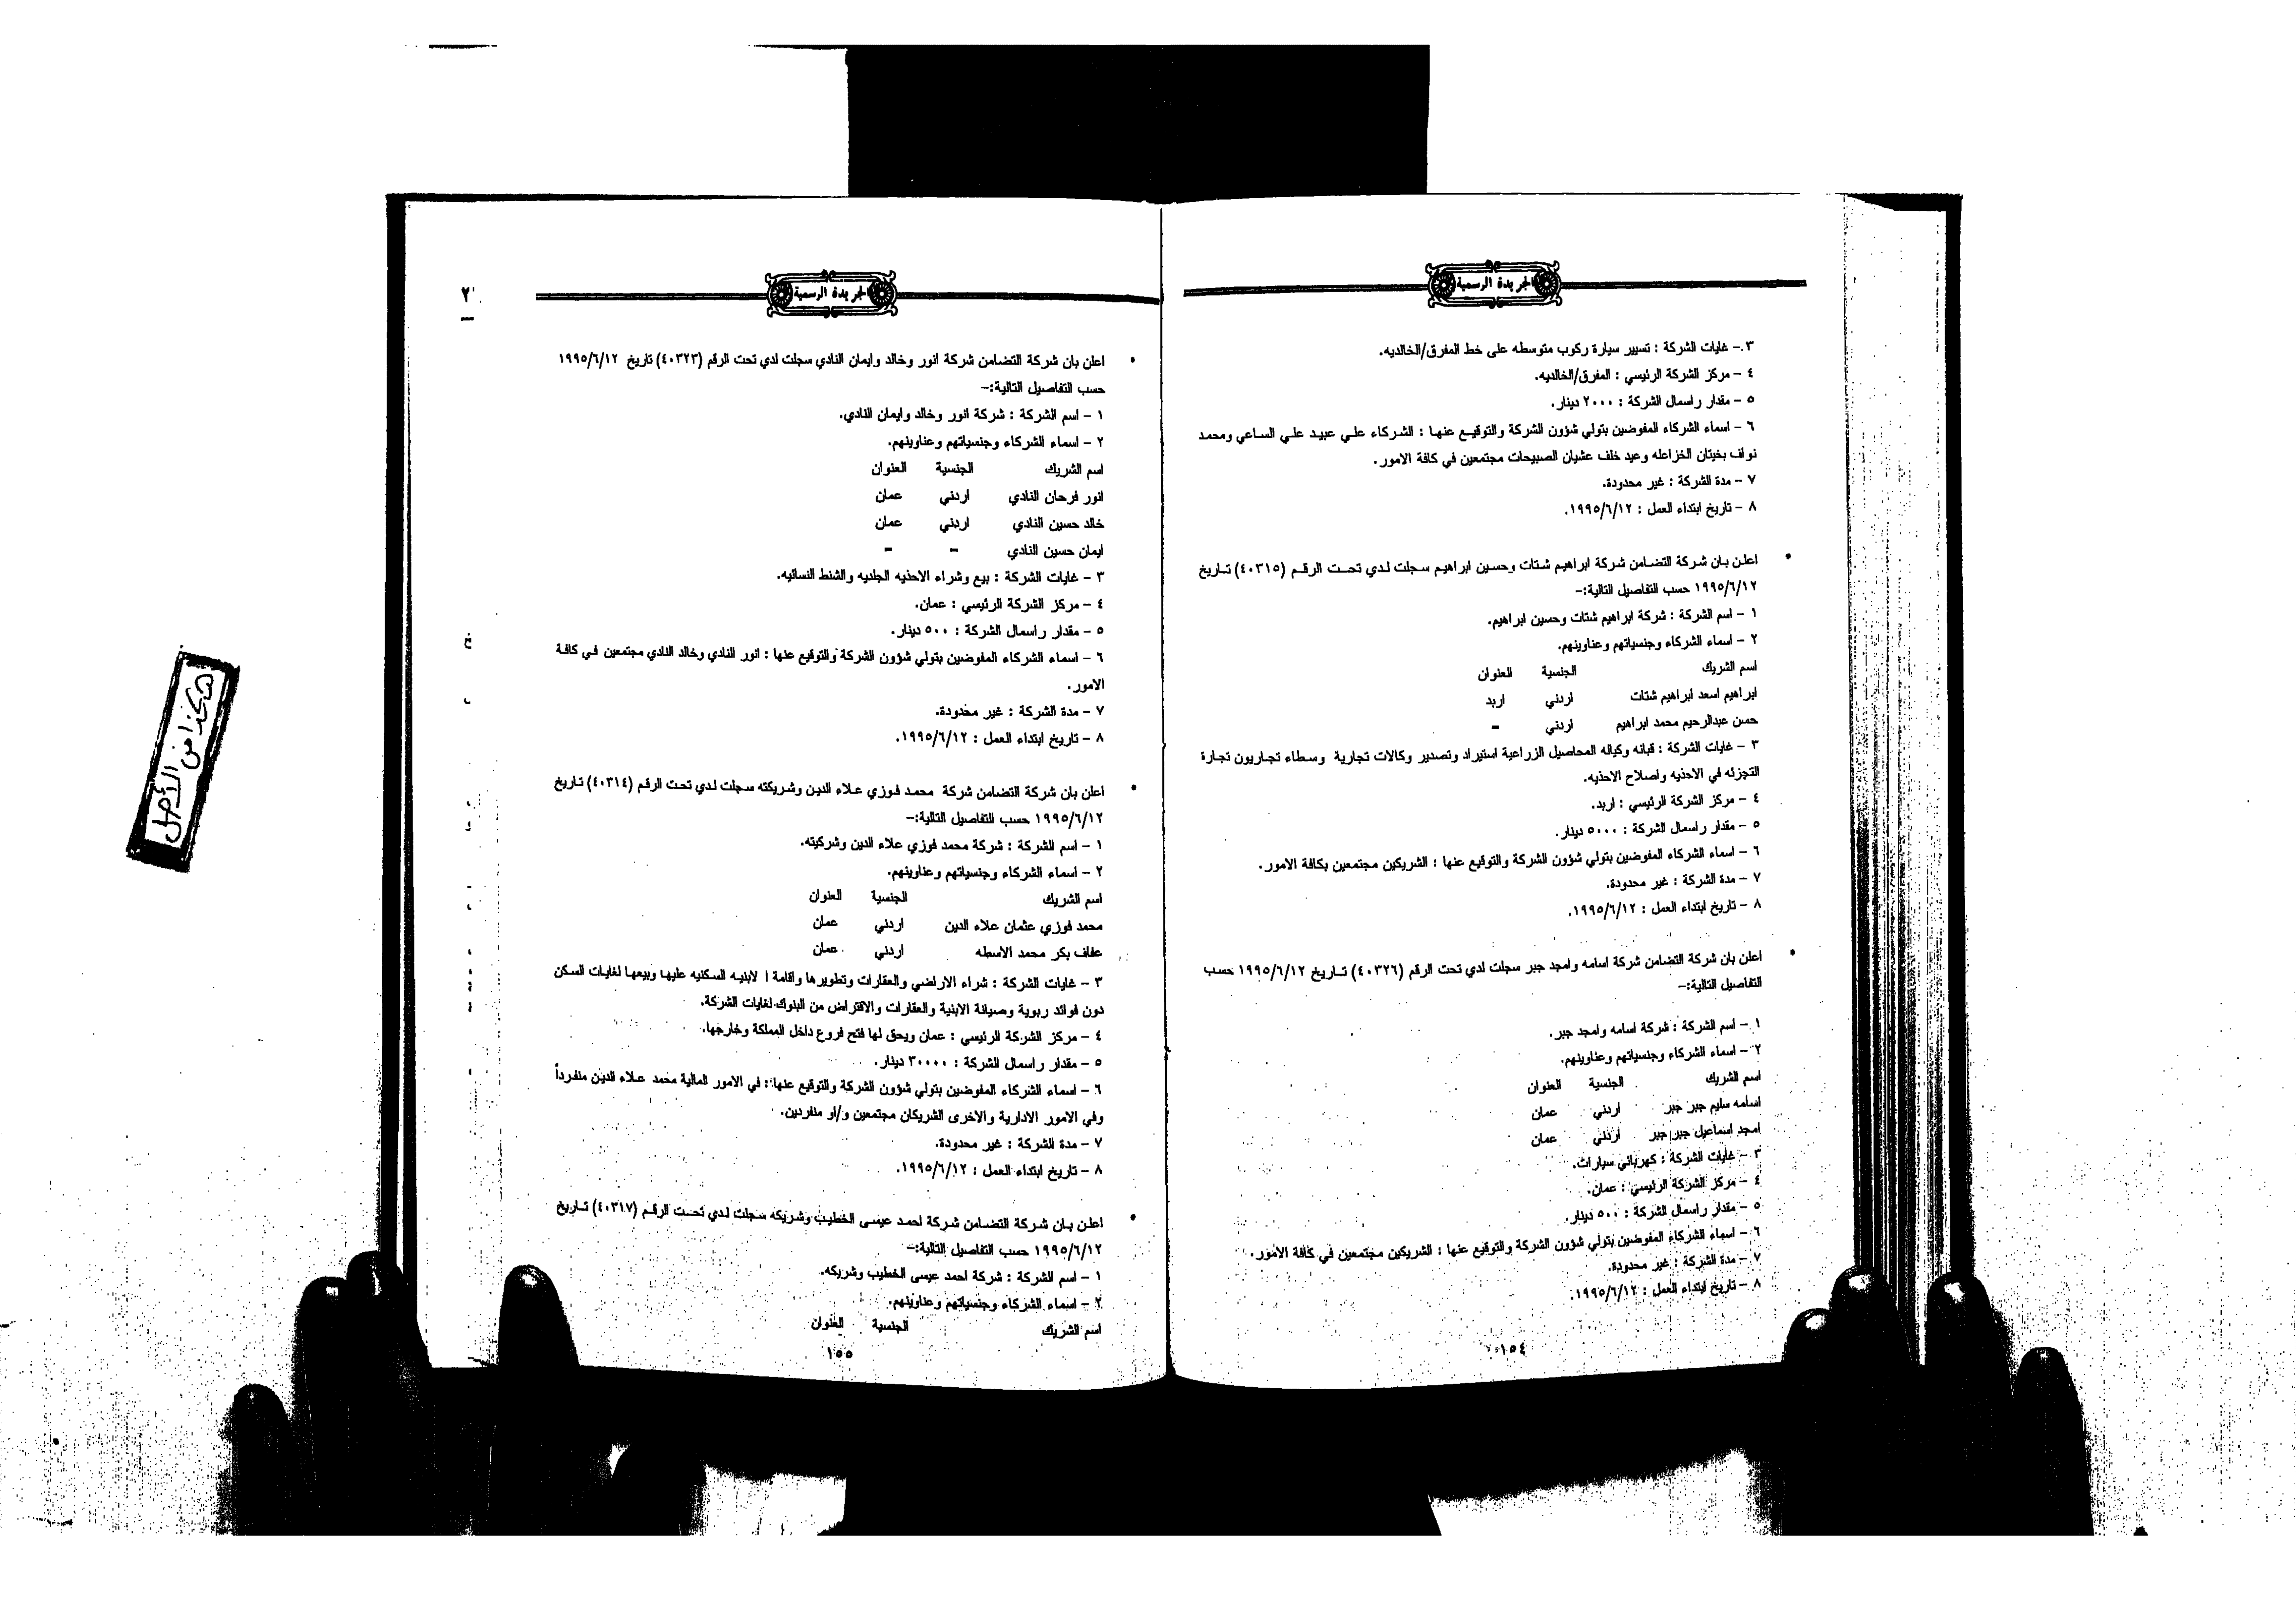 الجريدة الرسمية
٣ – غايات الشركة : تسيير سيارة ركوب متوسطه على خط المفرق/الخالديه.
٤ – مركز الشركة الرئيسي : المفرق/الخالديه.
٥ – مقدار راسمال الشركة : ٢٠٠٠ دينار.
٦ – اسماء الشركاء المفوضين بتولي شؤون الشركة والتوقيع عنها : الشركاء علي عبيد علي الساعي ومحمد
نواف بخيتان الخزاعله وعيد خلف عشيان الصبيحات مجتمعين في كافة الامور.
٧ – مدة الشركة : غير محدودة.
٨ – تاريخ ابتداء العمل : ١٩٩٥/٦/١٢.
• اعلن بان شركة التضامن شركة ابراهيم شتات وحسين ابراهيم سجلت لدي تحت الرقم (٤٠٣١٥) تاريخ
١٩٩٥/٦/١٢ حسب التفاصيل التالية:–
١ – اسم الشركة : شركة ابراهيم شتات وحسين ابراهيم.
٢ – اسماء الشركاء وجنسياتهم وعناوينهم.
اسم الشريك الجنسية العنوان
ابراهيم اسعد ابراهيم شتات اردني اربد
حسن عبدالرحيم محمد ابراهيم اردني –
٣ – غايات الشركة : قبانه وكياله المحاصيل الزراعية استيراد وتصدير وكالات تجارية وسطاء تجاريون تجارة
التجزئه في الاحذيه واصلاح الاحذيه.
٤ – مركز الشركة الرئيسي : اربد.
٥ – مقدار راسمال الشركة : ٥٠٠٠ دينار.
٦ – اسماء الشركاء المفوضين بتولي شؤون الشركة والتوقيع عنها : الشريكين مجتمعين بكافة الامور.
٧ – مدة الشركة : غير محدودة.
٨ – تاريخ ابتداء العمل : ١٩٩٥/٦/١٢.
• اعلن بان شركة التضامن شركة اسامه وامجد جبر سجلت لدي تحت الرقم (٤٠٣٢٦) تاريخ ١٩٩٥/٦/١٢ حسب
التفاصيل التالية:–
١ – اسم الشركة : شركة اسامه وامجد جبر.
٢ – اسماء الشركاء وجنسياتهم وعناوينهم.
اسم الشريك الجنسية العنوان
اسامه سليم جبر جبر اردني عمان
امجد اسماعيل جبر جبر اردني عمان
٣ – غايات الشركة : كهربائي سيارات.
٤ – مركز الشركة الرئيسي : عمان.
٥ – مقدار راسمال الشركة : ٥٠٠ دينار.
٦ – اسماء الشركاء المفوضين بتولي شؤون الشركة والتوقيع عنها : الشريكين مجتمعين في كافة الامور.
٧ – مدة الشركة : غير محدودة.
٨ – تاريخ ابتداء العمل : ١٩٩٥/٦/١٢.
١٥٤
الجريدة الرسمية
• اعلن بان شركة التضامن شركة انور وخالد وايمان النادي سجلت لدي تحت الرقم (٤٠٣٢٣) تاريخ ١٩٩٥/٦/١٢
حسب التفاصيل التالية:–
١ – اسم الشركة : شركة انور وخالد وايمان النادي.
٢ – اسماء الشركاء وجنسياتهم وعناوينهم.
اسم الشريك الجنسية العنوان
انور فرحان النادي اردني عمان
خالد حسين النادي اردني عمان
ايمان حسين النادي – –
٣ – غايات الشركة : بيع وشراء الاحذيه الجلديه والشنط النسائيه.
٤ – مركز الشركة الرئيسي : عمان.
٥ – مقدار راسمال الشركة : ٥٠٠ دينار.
٦ – اسماء الشركاء المفوضين بتولي شؤون الشركة والتوقيع عنها : انور النادي وخالد النادي مجتمعين في كافة
الامور.
٧ – مدة الشركة : غير محدودة.
٨ – تاريخ ابتداء العمل : ١٩٩٥/٦/١٢.
• اعلن بان شركة التضامن شركة محمد فوزي علاء الدين وشريكته سجلت لدي تحت الرقم (٤٠٣١٤) تاريخ
١٩٩٥/٦/١٢ حسب التفاصيل التالية:–
١ – اسم الشركة : شركة محمد فوزي علاء الدين وشركيته.
٢ – اسماء الشركاء وجنسياتهم وعناوينهم.
اسم الشريك الجنسية العنوان
محمد فوزي عثمان علاء الدين اردني عمان
عفاف بكر محمد الاسطه اردني عمان
٣ – غايات الشركة : شراء الاراضي والعقارات وتطويرها واقامة ا لابنيه السكنيه عليها وبيعها لغايات السكن
دون فوائد ربوية وصيانة الابنية والعقارات والاقتراض من البنوك لغايات الشركة.
٤ – مركز الشركة الرئيسي : عمان ويحق لها فتح فروع داخل المملكة وخارجها.
٥ – مقدار راسمال الشركة : ٣٠٠٠٠ دينار.
٦ – اسماء الشركاء المفوضين بتولي شؤون الشركة والتوقيع عنها : في الامور المالية محمد علاء الدين منفرداً
وفي الامور الادارية والاخرى الشريكان مجتمعين و/او منفردين.
٧ – مدة الشركة : غير محدودة.
٨ – تاريخ ابتداء العمل : ١٩٩٥/٦/١٢.
• اعلن بان شركة التضامن شركة احمد عيسى الخطيب وشريكه سجلت لدي تحت الرقم (٤٠٣١٧) تاريخ
١٩٩٥/٦/١٢ حسب التفاصيل التالية:–
١ – اسم الشركة : شركة احمد عيسى الخطيب وشريكه.
٢ – اسماء الشركاء وجنسياتهم وعناوينهم.
اسم الشريك الجنسية العنوان
١٥٥
هكذا من الأصل